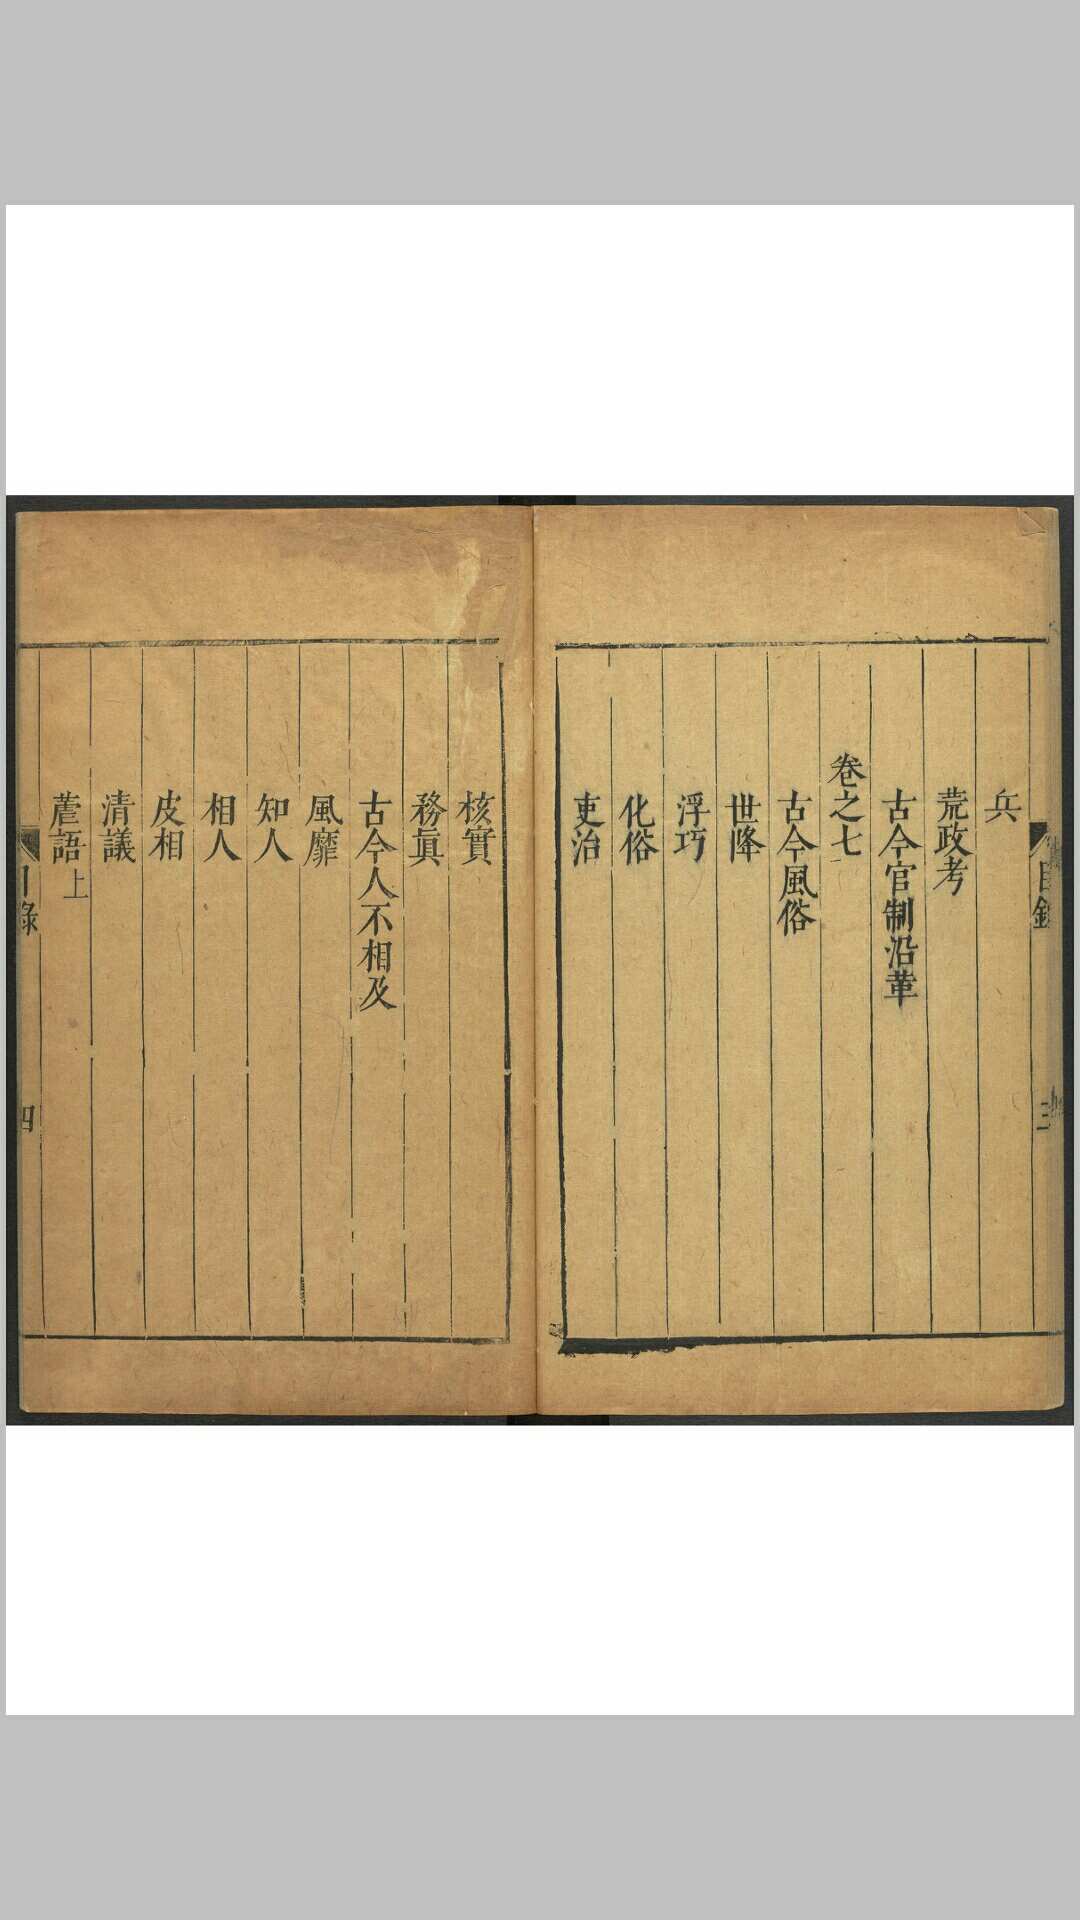 目錄
三
兵
荒政考
古今官制沿革
卷之七
古今風俗
世降
浮巧
化俗
吏治
核實
務眞
古今人不相及
風靡
知人
相人
皮相
清議
藘語上
目錄
四